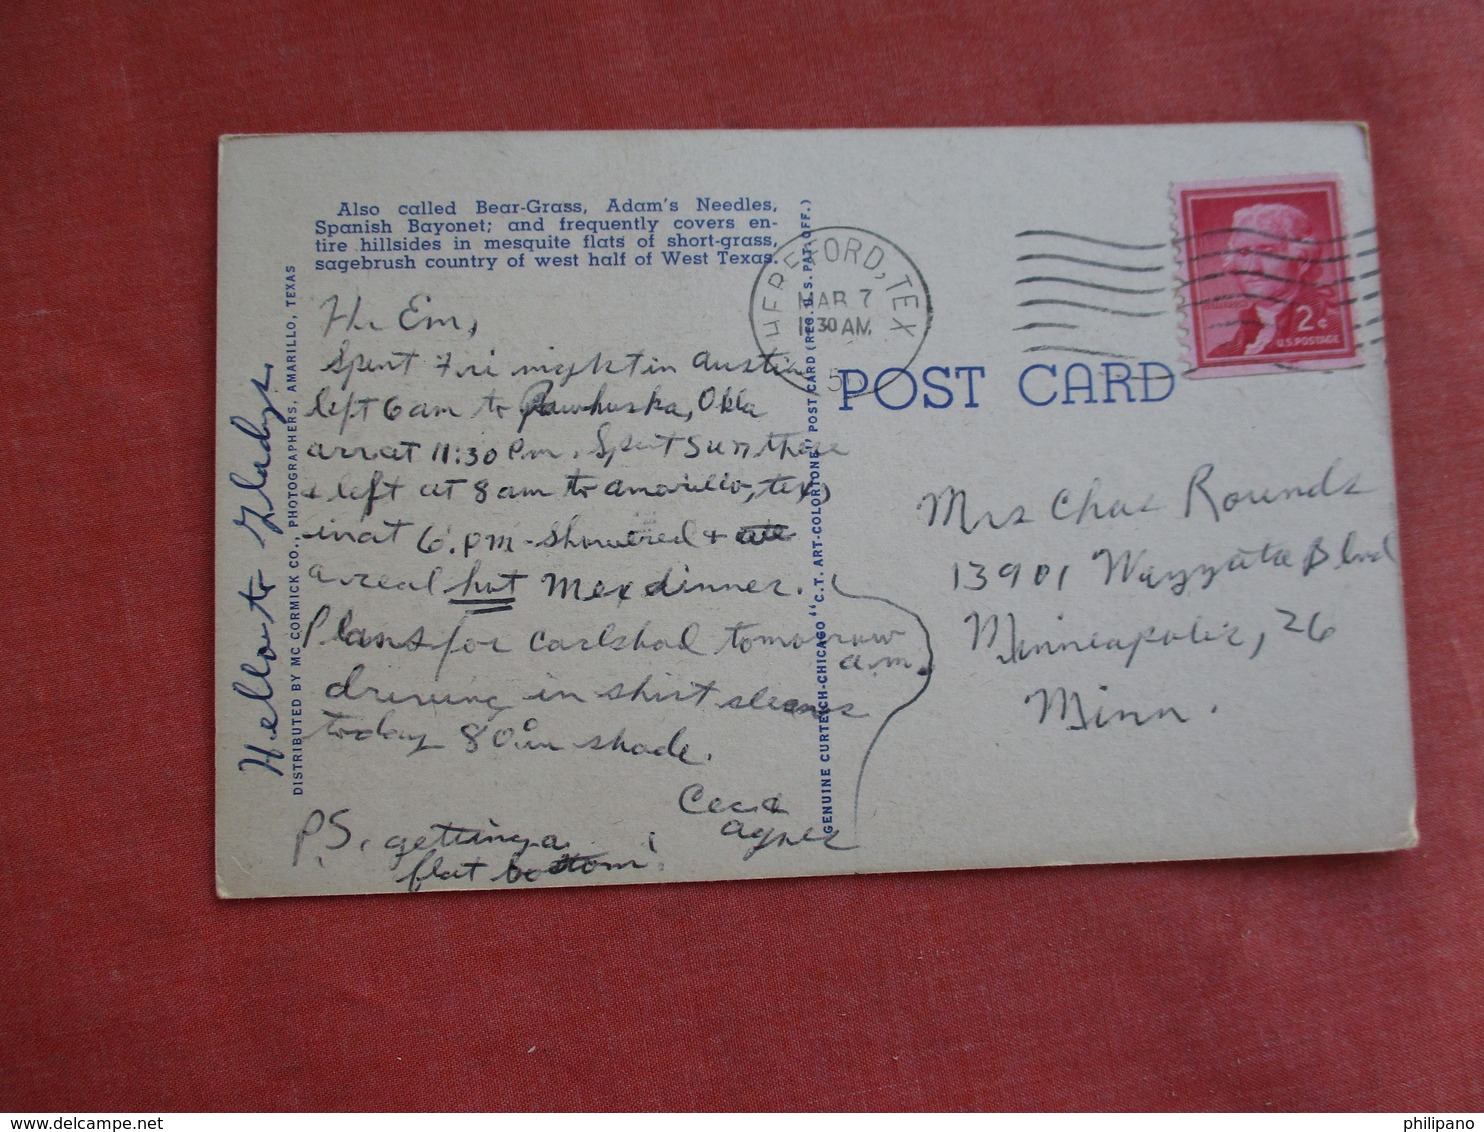 Also called Bear-Grass, Adam's Needles,
Spanish Bayonet; and frequently covers en-
tire hillsides in mesquite flats of short-grass,
sagebrush country of west half of West Texas.
Hi Em,
Spent Fri night in Austin
left 6 am to Pawhuska, Okla
arr at 11:30 Pm. Spent Sun there
& left at 8 am to Amarillo, tex,
in at 6. PM - Showered & ate
a real hot Mex dinner.
Plans for Carlsbad tomorrow
a.m.
driving in shirt sleeves
today 80° in shade.
Cec &
Agnes
P.S. getting a
flat bottom!
Hello to Gladys.
DISTRIBUTED BY MC CORMICK CO., PHOTOGRAPHERS, AMARILLO, TEXAS
GENUINE CURTEICH-CHICAGO "C.T. ART-COLORTONE" POST CARD (REG. U.S. PAT. OFF.)
HEREFORD, TEX
MAR 7
30 AM
POST CARD
2¢
U.S. POSTAGE
Mrs Chas Rounds
13901 Wayzata Blvd
Minneapolis, 26
Minn.
www.delcampe.net
philipano